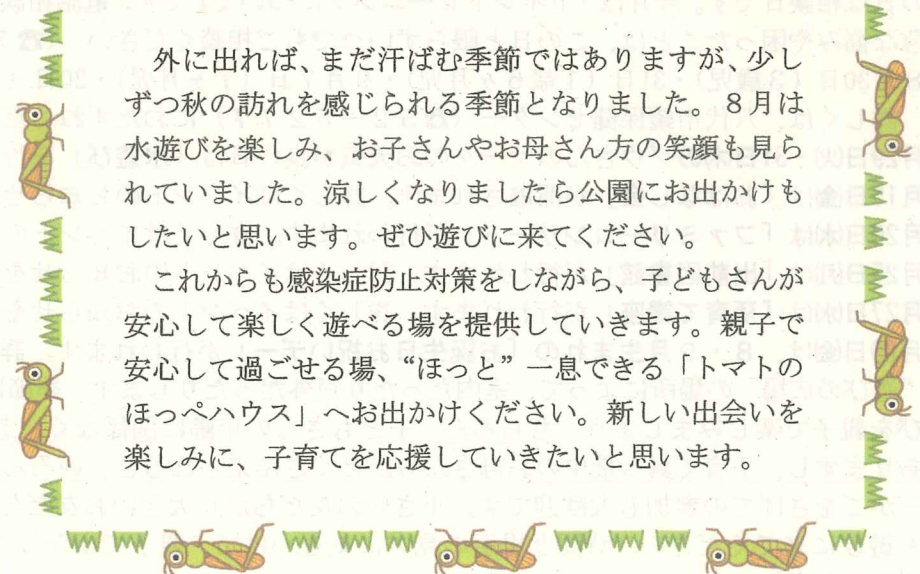 外に出れば、まだ汗ばむ季節ではありますが、少し
ずつ秋の訪れを感じられる季節となりました。８月は
水遊びを楽しみ、お子さんやお母さん方の笑顔も見ら
れていました。涼しくなりましたら公園にお出かけも
したいと思います。ぜひ遊びに来てください。
これからも感染症防止対策をしながら、子どもさんが
安心して楽しく遊べる場を提供していきます。親子で
安心して過ごせる場、“ほっと”一息できる「トマトの
ほっぺハウス」へお出かけください。新しい出会いを
楽しみに、子育てを応援していきたいと思います。